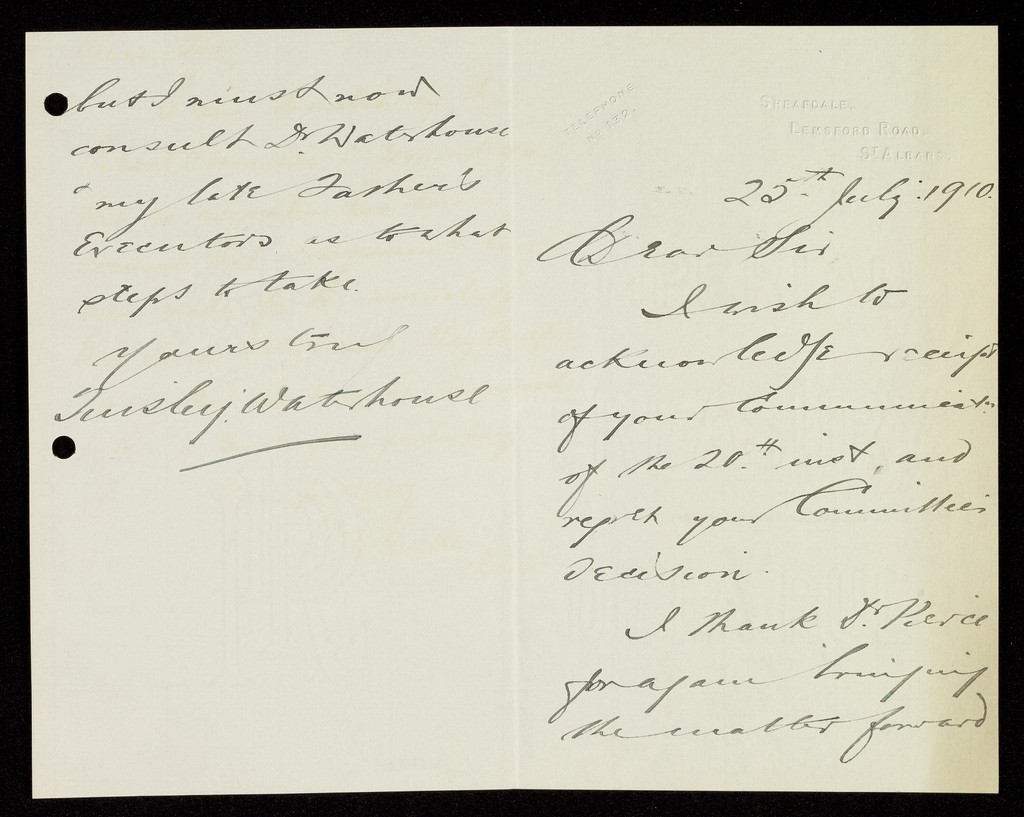 TELEPHONE
No 132.
SHEAFDALE.
LEMSFORD ROAD.
ST ALBANS.
25th July. 1910.
Dear Sir
I wish to
acknowledge receipt
of your Communicatn
of the 20th inst, and
regret your Committee's
decision.
I thank Dr. Pierce
for again bringing
the matter forward
but I must now
consult Dr Waterhouse
my late Father's
Executors as to what
steps to take.
Yours truly
Waterhouse